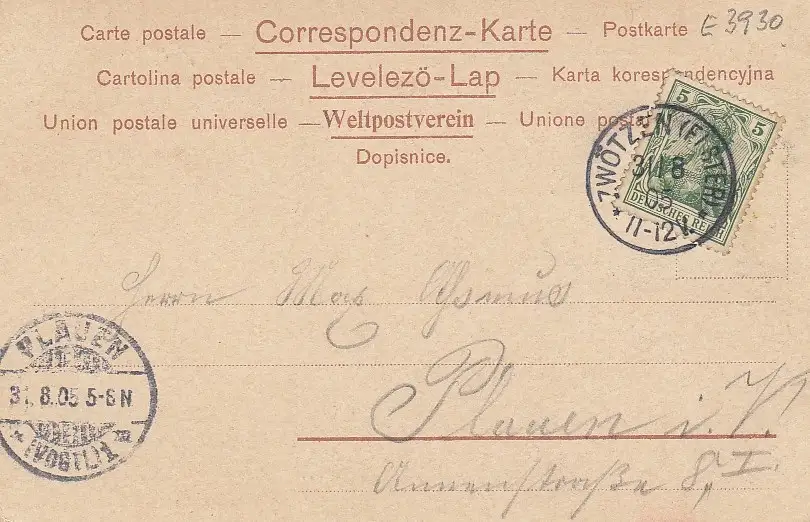 Carte postale — Correspondenz-Karte — Postkarte E 3930
Cartolina postale — Levelező-Lap — Karta korespondencyjna
Union postale universelle — Weltpostverein — Unione postal
Dopisnice.
5 5
DEUTSCHES REICH
ZWÖTZEN (ELSTER)
31.8
05
11-12V.
Herrn Max Asmus
Plauen i. V.
Annenstraße 8, I.
PLAUEN
31.8.05 5-6 N
(VOGTL) 1